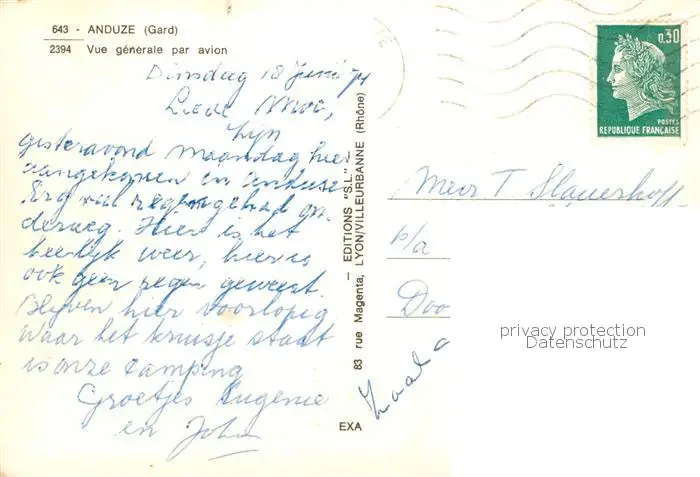 643 - ANDUZE (Gard)
2394 Vue générale par avion
Dinsdag 18 juni 74
Lieve Moe,
Zijn
gisteravond maandag hier
aangekomen in Anduze
Erg veel regen gehad on-
derweg. Hier is het
heerlijk weer, hier is
ook geen regen geweest.
Blijven hier voorlopig
waar het kruisje staat
is onze camping
Groetjes Eugenie
en John
EDITIONS "S.L."
83 rue Magenta, LYON/VILLEURBANNE (Rhône)
EXA
0,30
POSTES
REPUBLIQUE FRANÇAISE
T Slauerhoff
p/a
Doo
privacy protection
Datenschutz